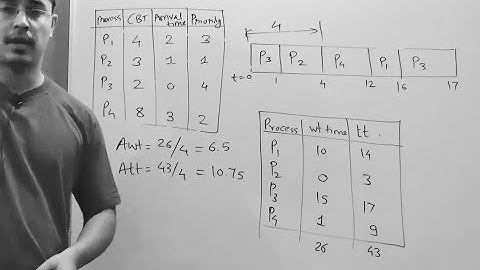 Process CBT Arrival time Priority
P1 4 2 3
P2 3 1 1
P3 2 0 4
P4 8 3 2
Awt = 26/4 = 6.5
Att = 43/4 = 10.75
4
P3 P2 P4 P1 P3
t=0 1 4 12 16 17
Process wt time tt.
P1 10 14
P2 0 3
P3 15 17
P4 1 9
26 43